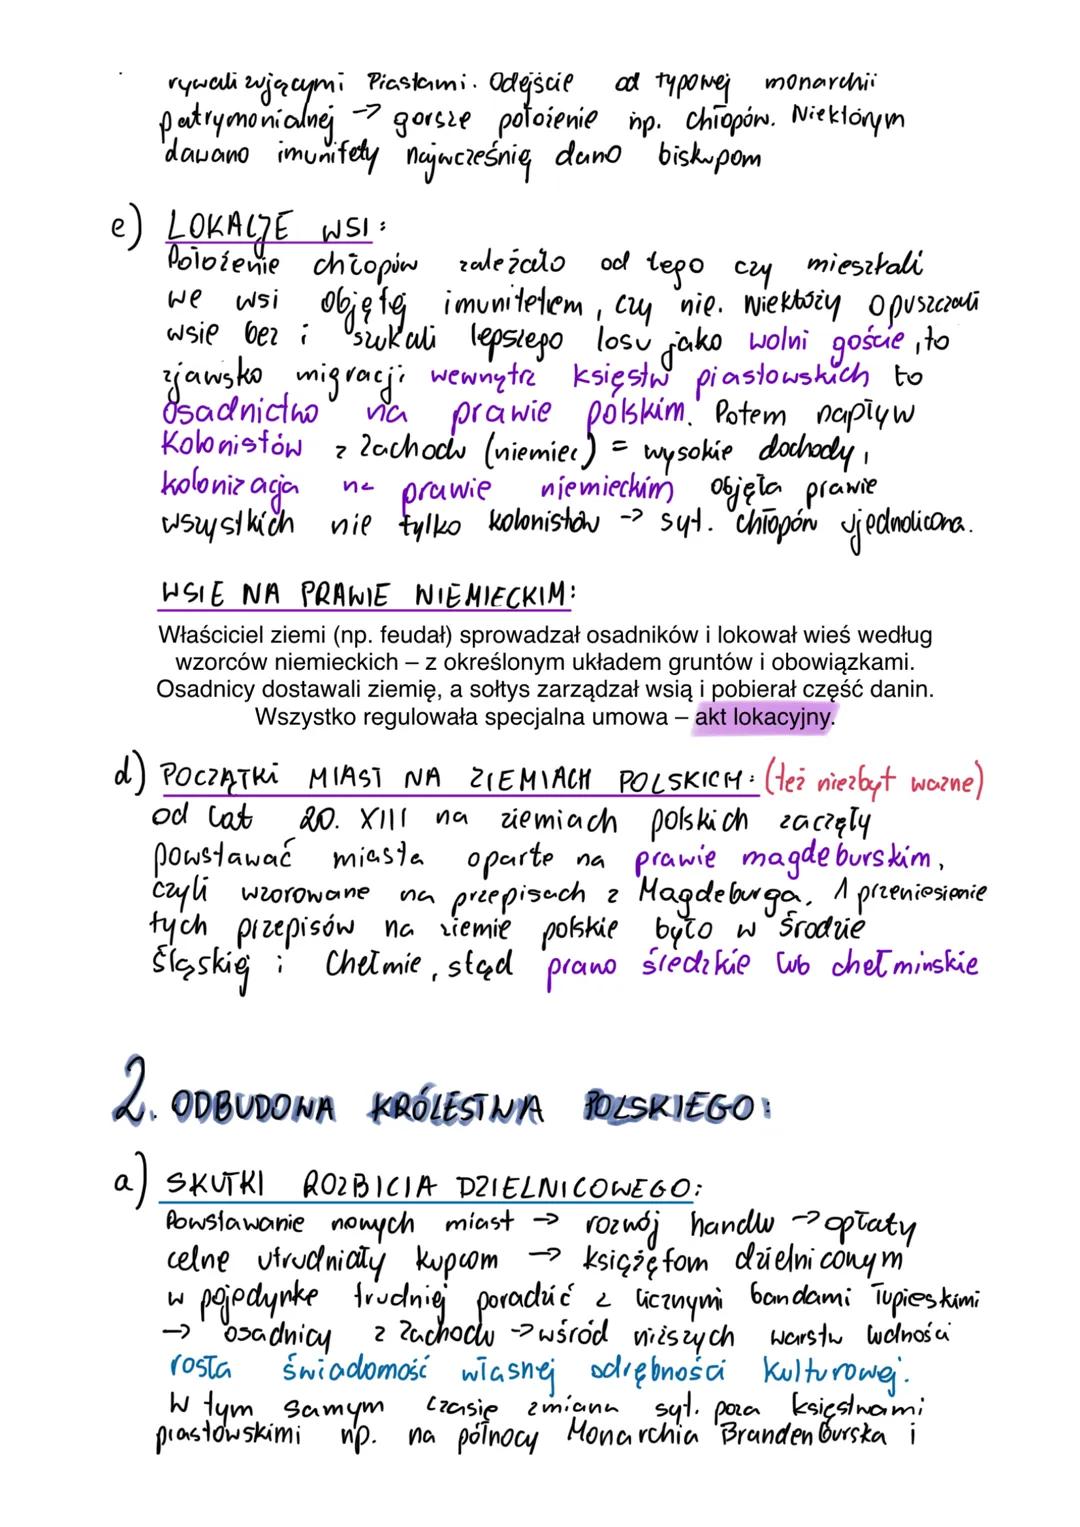 rywalizującymi Piastami. Odejście od typowej monarchii
patrymonialnej → gorsze położenie np. chłopów. Niektórym
dawano imunitety najwcześnią dano biskupom
e) LOKACJE WSI:
Położenie chłopów zależało od tego czy mieszkali
we wsi objętej imunitetem, czy nie. Niektórzy opuszczali
wsie bez i szukali lepszego losu jako wolni goście, to
zjawsko migracji wewnątrz księstw piastowskich to
osadnictwo na prawie polskim. Potem napływ
kolonistów z Zachodu (niemiec) = wysokie dochody,
kolonizacja na prawie niemieckim objęła prawie
wszystkich nie tylko kolonistów → syt. chłopów ujednolicona.
WSIE NA PRAWIE NIEMIECKIM:
Właściciel ziemi (np. feudał) sprowadzał osadników i lokował wieś według
wzorców niemieckich – z określonym układem gruntów i obowiązkami.
Osadnicy dostawali ziemię, a sołtys zarządzał wsią i pobierał część danin.
Wszystko regulowała specjalna umowa – akt lokacyjny.
d) POCZĄTKI MIAST NA ZIEMIACH POLSKICH: (też niezbyt ważne)
od lat 20. XIII na ziemiach polskich zaczęły
powstawać miasta oparte na prawie magdeburskim,
czyli wzorowane na przepisach z Magdeburga. 1 przeniesienie
tych przepisów na ziemie polskie było w Środzie
Śląskiej i Chełmie, stąd prawo średzkie lub chełminskie
2. ODBUDOWA KRÓLESTWA POLSKIEGO:
a) SKUTKI ROZBICIA DZIELNICOWEGO:
Powstawanie nowych miast → rozwój handlu → opłaty
celne utrudniały kupcom → książętom dzielniconym
w pojedynkę trudniej poradzić z licznymi bandami łupieskimi
→ osadnicy z Zachodu → wśród niższych warstw ludności
rosła świadomość własnej odrębności kulturowej.
W tym samym czasie zmiana syt. poza księstwami
piastowskimi np. na północy Monarchia Brandenburska i